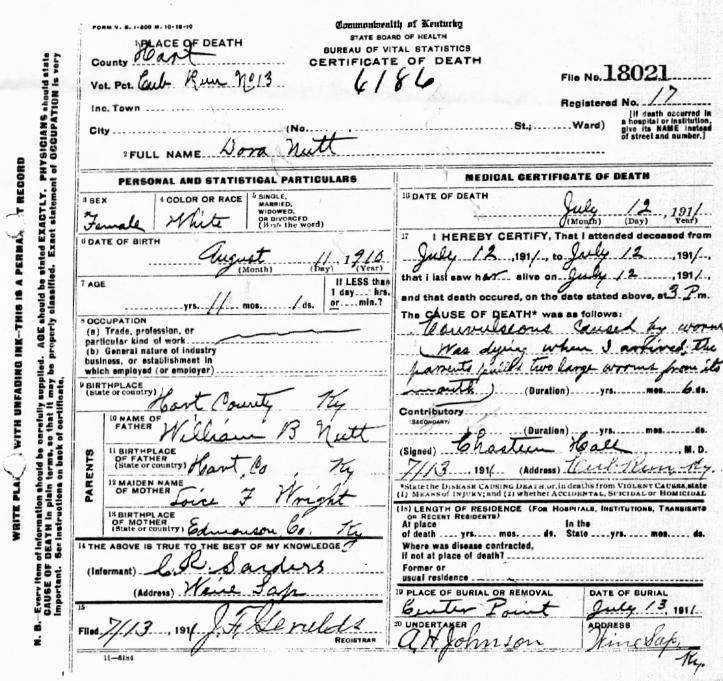 FORM V. S. 1-200 M. 10-18-10
Commonwealth of Kentucky
STATE BOARD OF HEALTH
BUREAU OF VITAL STATISTICS
CERTIFICATE OF DEATH
6186
File No. 18021
Registered No. 17
[If death occurred in a hospital or institution, give its NAME instead of street and number.]
1 PLACE OF DEATH
County Hart
Vot. Pct. Cub Run No 13
Inc. Town
City (No. St.; Ward)
2 FULL NAME Dora Nutt
PERSONAL AND STATISTICAL PARTICULARS
3 SEX
Female
4 COLOR OR RACE
White
5 SINGLE, MARRIED, WIDOWED, OR DIVORCED (Write the word)
6 DATE OF BIRTH
August 11 1910
(Month) (Day) (Year)
7 AGE
yrs. 11 mos. 1 ds.
If LESS than 1 day hrs. or min.?
8 OCCUPATION
(a) Trade, profession, or particular kind of work
(b) General nature of industry business, or establishment in which employed (or employer)
9 BIRTHPLACE
(State or country) Hart County Ky
PARENTS
10 NAME OF FATHER William B Nutt
11 BIRTHPLACE OF FATHER (State or country) Hart Co, Ky
12 MAIDEN NAME OF MOTHER F Wright
13 BIRTHPLACE OF MOTHER (State or country) Edmonson Co. Ky
14 THE ABOVE IS TRUE TO THE BEST OF MY KNOWLEDGE
(Informant) C. R. Sanders
(Address) Wine Sap
15
Filed 7/13, 1911 J. F.
REGISTRAR
11-6184
MEDICAL CERTIFICATE OF DEATH
16 DATE OF DEATH
July 12, 1911
(Month) (Day) (Year)
17 I HEREBY CERTIFY, That I attended deceased from
July 12, 1911, to July 12, 1911,
that I last saw her alive on July 12, 1911,
and that death occured, on the date stated above, at 3 P m.
The CAUSE OF DEATH* was as follows:
Convulseons Caused by worms
Was dying when I arrived, the
parents pulled two large worms from its
mouth (Duration) yrs. mos. 6 ds.
Contributory
SECONDARY
(Duration) yrs. mos. ds.
(Signed) Chasteen Hall M. D.
7/13, 1911 (Address) Cub Run, Ky.
*State the DISEASE CAUSING DEATH, or, in deaths from VIOLENT CAUSES, state (1) MEANS OF INJURY; and (2) whether ACCIDENTAL, SUICIDAL OR HOMICIDAL
(18) LENGTH OF RESIDENCE (FOR HOSPITALS, INSTITUTIONS, TRANSIENTS OR RECENT RESIDENTS)
At place of death yrs. mos. ds. In the State yrs. mos. ds.
Where was disease contracted, if not at place of death?
Former or usual residence
19 PLACE OF BURIAL OR REMOVAL
Center Point
DATE OF BURIAL
July 13, 1911
20 UNDERTAKER
A. H. Johnson
ADDRESS
Wine Sap, Ky.
WRITE PLA WITH UNFADING INK—THIS IS A PERMA T RECORD
N. B.—Every item of information should be carefully supplied. AGE should be stated EXACTLY. PHYSICIANS should state
CAUSE OF DEATH in plain terms, so that it may be properly classified. Exact statement of OCCUPATION is very
important. See instructions on back of certificate.